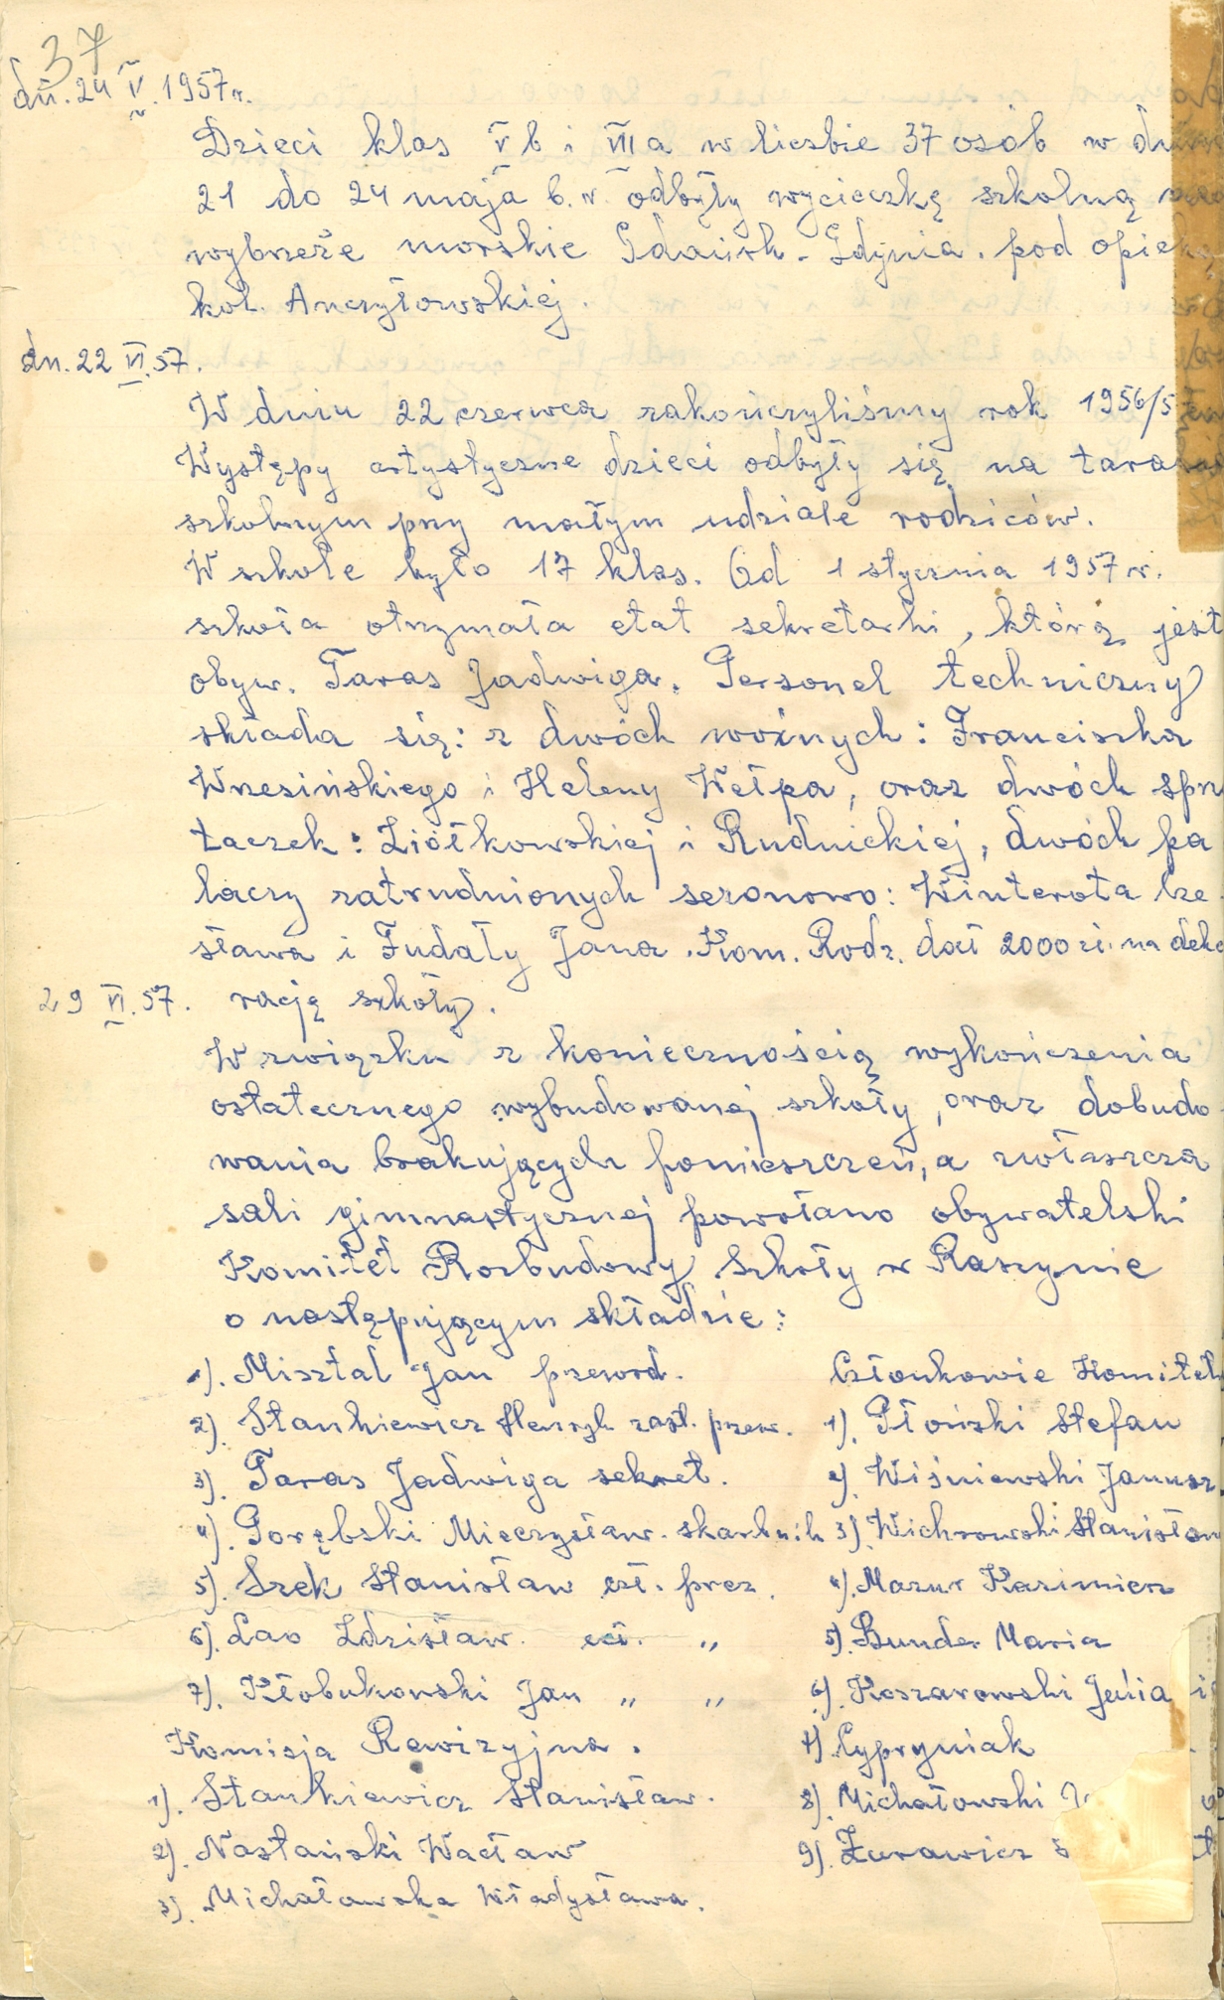 37
dn. 24 V. 1957 r.
Dzieci klas V b i VII a w liczbie 37 osób w
21 do 24 maja b. r. odbyły wycieczkę szkolną
wybrzeże morskie Gdańsk - Gdynia. pod opieką
kol. Anczyłowskiej.
dn. 22 VI. 57.
W dniu 22 czerwca zakończyliśmy rok 1956/5
Występy artystyczne dzieci odbyły się na
szkolnym przy małym udziale rodziców.
W szkole było 17 klas. Od 1 stycznia 1957 r.
szkoła otrzymała etat sekretarki, którą jest
obyw. Taras Jadwiga. Personel techniczny
składa się: z dwóch woźnych: Franciszka
Wrzesińskiego i Heleny Wełpa, oraz dwóch sprzą
taczek: Ziółkowskiej i Rudnickiej, dwóch pa
laczy zatrudnionych sezonowo: Winterota Cze
sława i Fudały Jana. Kom. Rodz. dał 2000 zł. na deko
29 VI. 57. rację szkoły.
W związku z koniecznością wykończenia
ostatecznego wybudowanej szkoły, oraz dobudo-
wania brakujących pomieszczeń, a zwłaszcza
sali gimnastycznej powołano obywatelski
Komitet Rozbudowy Szkoły w Raszynie
o następującym składzie:
1). Misztal Jan przewod. Członkowie Komitetu
2). Stankiewicz Henryk zast. przew. 1). Płoński Stefan
3). Taras Jadwiga sekret. 2). Wiśniewski Janusz
4). Porębski Mieczysław. skarbnik 3). Wichrowski Stanisław
5). Szek Stanisław czł. prez. 4). Mazur Kazimierz
6). Lao Zdzisław. czł. „ 5). Bunder Maria
7). Kłobukowski Jan „ „ 6). Koszarowski
Komisja Rewizyjna. 7). Cypryniak
1). Stankiewicz Stanisław. 8). Michałowski
2). Nastański Wacław 9). Żurawicz
3). Michałowska Władysława.